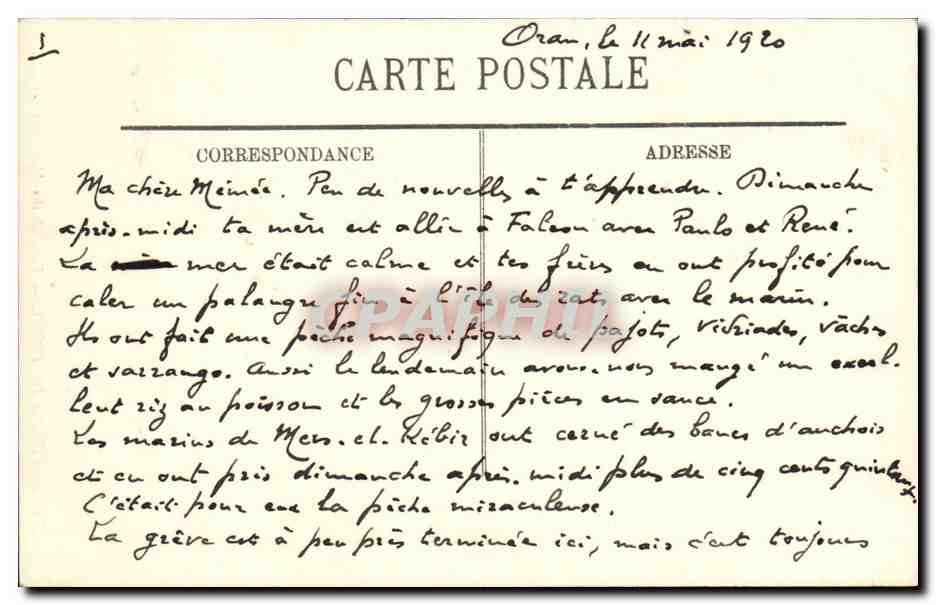 1
Oran, le 11 mai 1920
CARTE POSTALE
CORRESPONDANCE
ADRESSE
Ma chère Mémée. Peu de nouvelles à t'apprendre. Dimanche
après-midi ta mère est allée à Falcon avec Paulo et René.
La mer était calme et tes frères en ont profité pour
caler un palangre fin à l'île des rats avec le marin.
Ils ont fait une pêche magnifique de pajots, vidriades, vaches
et sarrangs. Aussi le lendemain avons-nous mangé un excel-
lent riz au poisson et les grosses pièces en sauce.
Les marins de Mers-el-Kébir ont cerné des bancs d'anchois
et en ont pris dimanche après-midi plus de cinq cents quintaux.
C'était pour eux la pêche miraculeuse.
La grève est à peu près terminée ici, mais c'est toujours
CPAPHIL